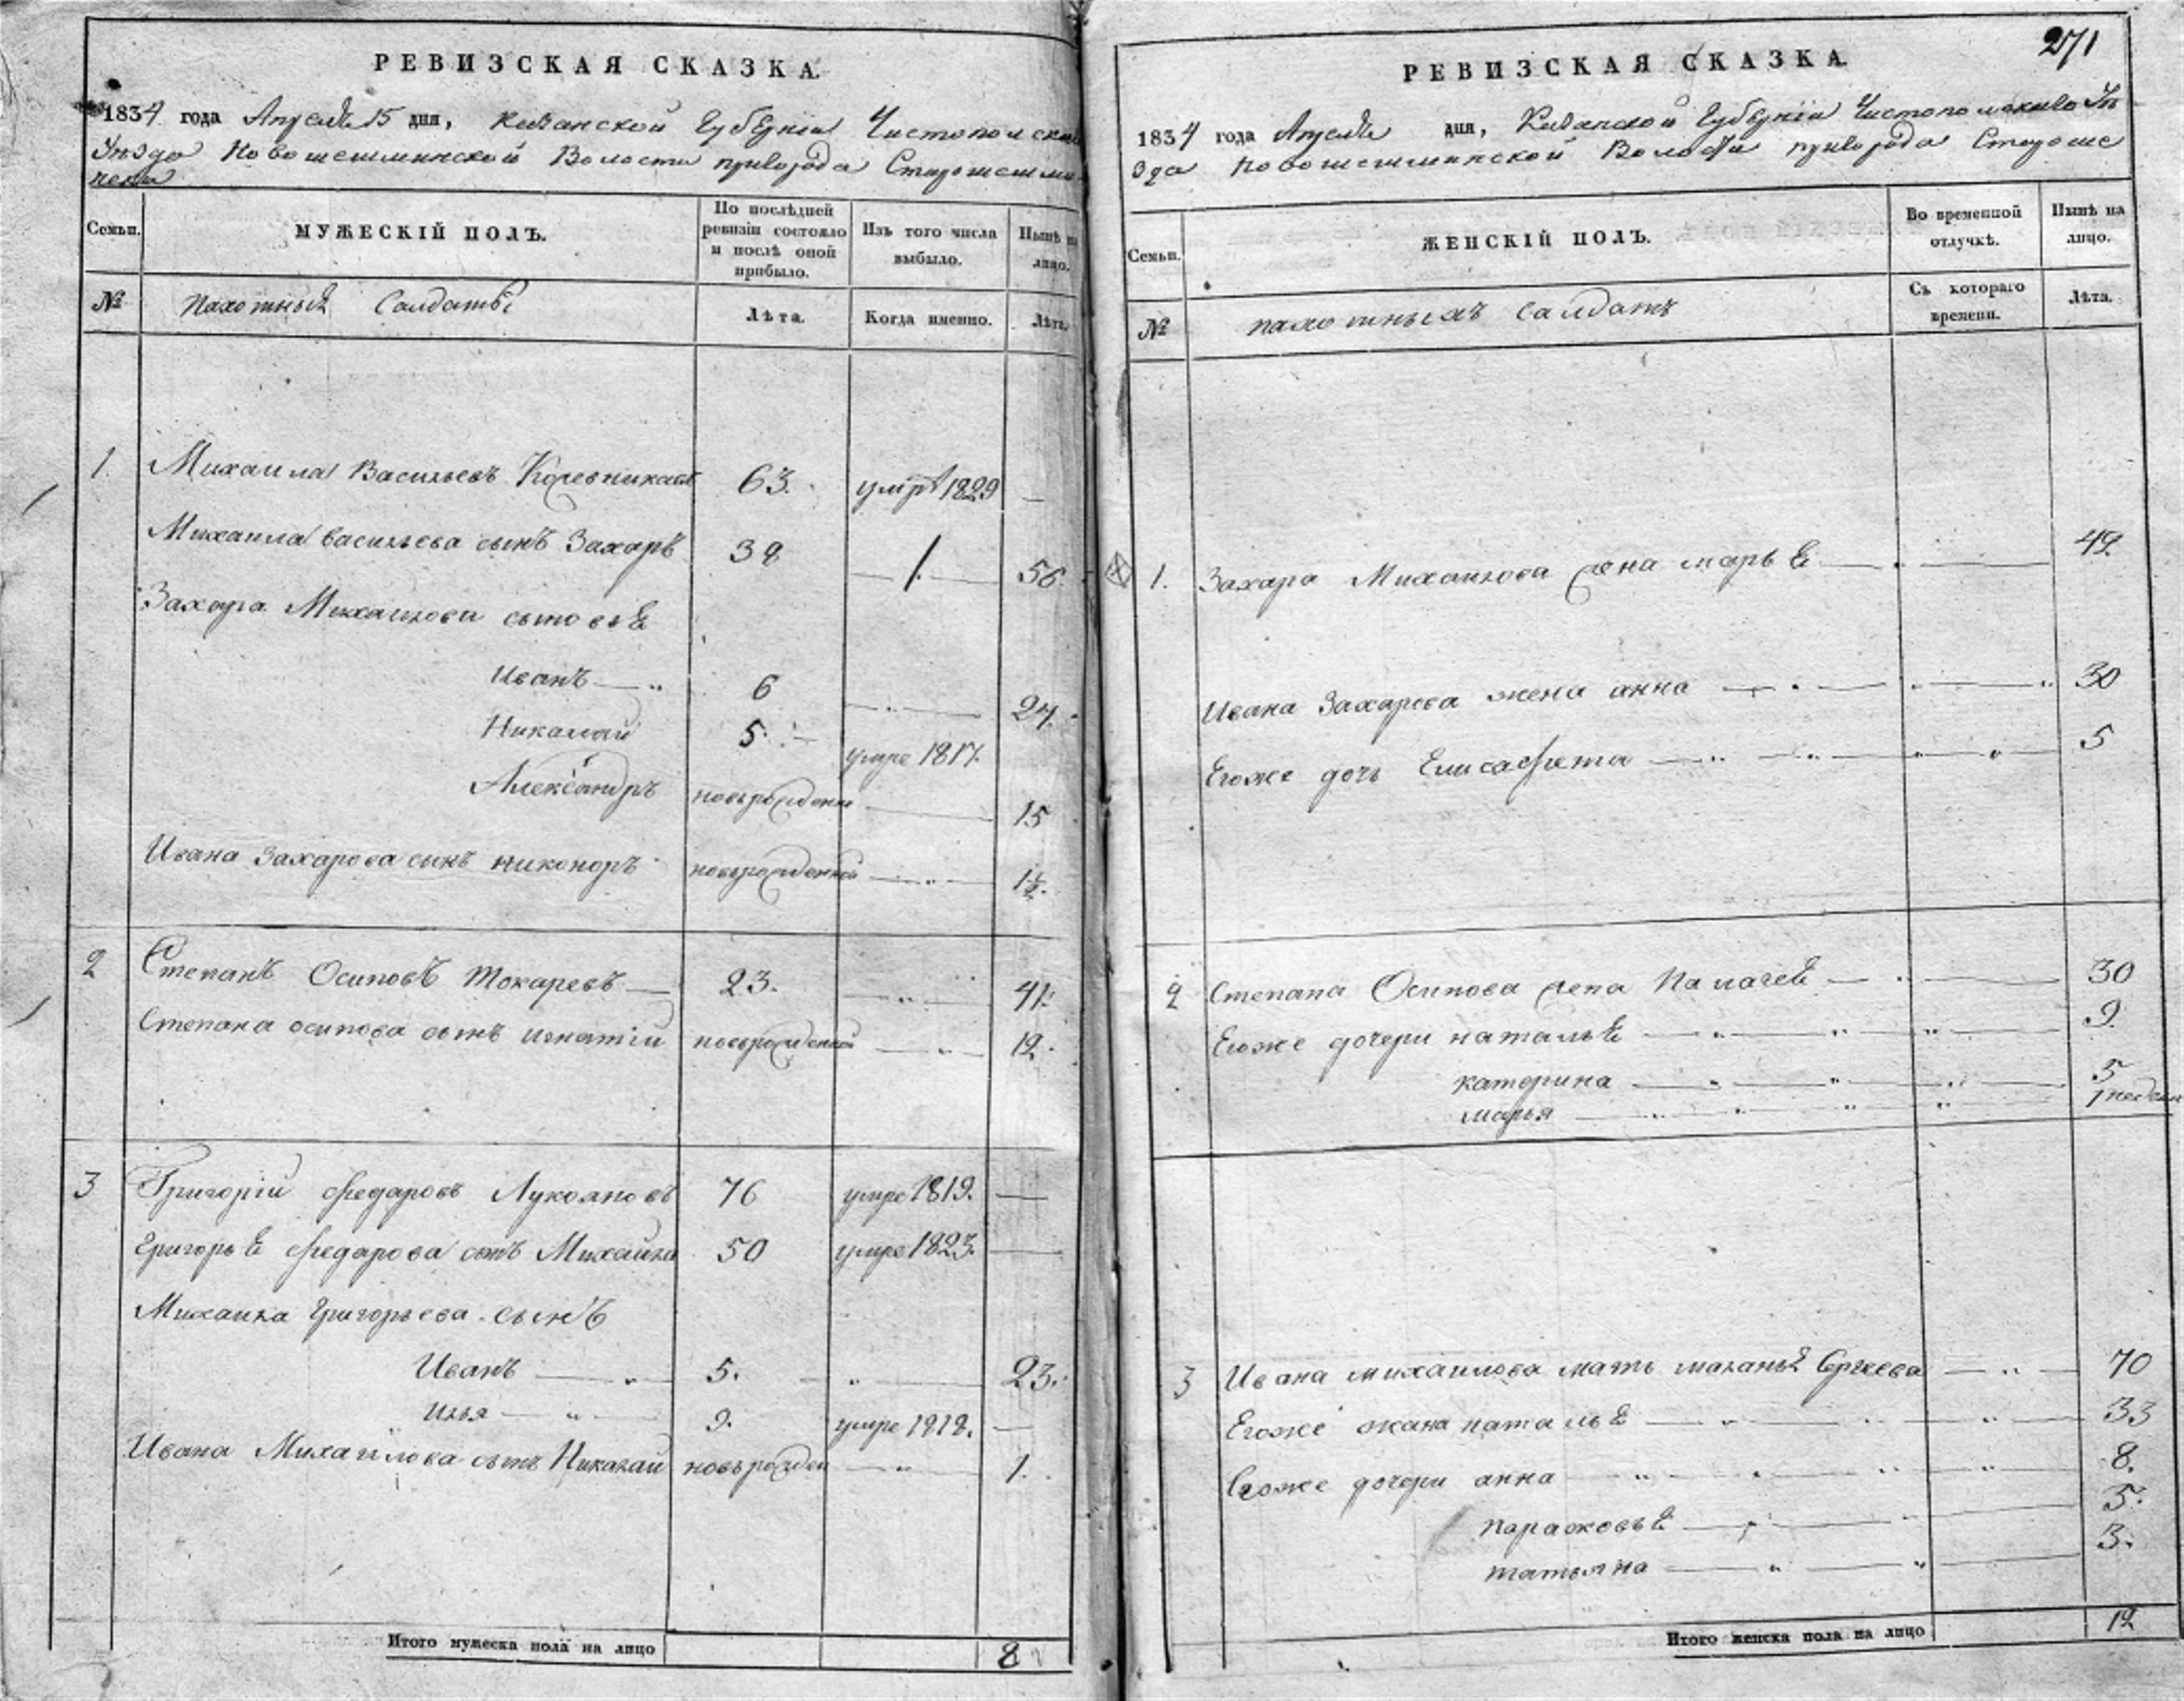 РЕВИЗСКАЯ СКАЗКА.
1834 года Апреля 15 дня, Казанской Губернии Чистопольскаго
Уезда Новошешминской Волости пригорода Старошешмин
Семьи.
МУЖЕСКІЙ ПОЛЪ.
По послѣдней ревизіи состояло и послѣ оной прибыло.
Изъ того числа выбыло.
Нынѣ на лицо.
№
пахотныя Салдаты
Лѣта.
Когда именно.
Лѣта.
1. Михаила Васильевъ 63. умре 1829 —
Михаила васильева сынъ Захаръ 38 — 56.
Захара Михаилова сыновья
Иванъ — 6 — 24.
Николай 5. умре 1817.
Александръ новърожденъ — 15
Ивана Захарова сынъ никоноръ новорожденной — 1½.
2 Степанъ Осиповъ Токаревъ — 23. — 41.
Степана осипова сынъ игнатій новорожденной — 12.
3 Григорій федаровъ Лукояновъ 76 умре 1819. —
Григорья федарова сынъ Михаила 50 умре 1823. —
Михаила Григорьева сынъ
Иванъ — 5. — 23.
илья — 9. умре 1818. —
Ивана Михаилова сынъ Николай новърожден — 1.
Итого мужеска пола на лицо 8
271
РЕВИЗСКАЯ СКАЗКА.
1834 года Апреля дня, Казанской Губерніи Чистопольскаго Уѣ
зда Новошешминской Волости пригорода Староше
Семьи.
ЖЕНСКІЙ ПОЛЪ.
Во временной отлучкѣ.
Нынѣ на лицо.
№
пахотныхъ Салдатъ
Съ котораго времени.
Лѣта.
1. Захара Михаилова жена марья — 48.
Ивана Захарова жена анна — 30
Егоже дочь Елисафета — 5
2 Степана Осипова жена Палагея — 30
Егоже дочери наталья — 9.
катерина — 5
марья — 1 недели
3 Ивана михаилова мать маланья Сергеева — 70
Егоже жана наталья — 33
Егоже дочери анна — 8.
парасковья — 5.
татьяна — 3.
Итого женска пола на лицо 12